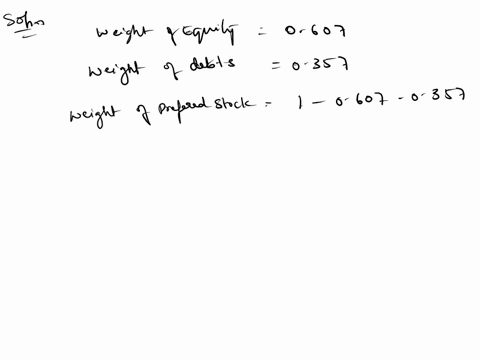 Soln
Weight of Equity = 0.607
Weight of debts = 0.357
Weight of Prefered Stock = 1 - 0.607 - 0.357